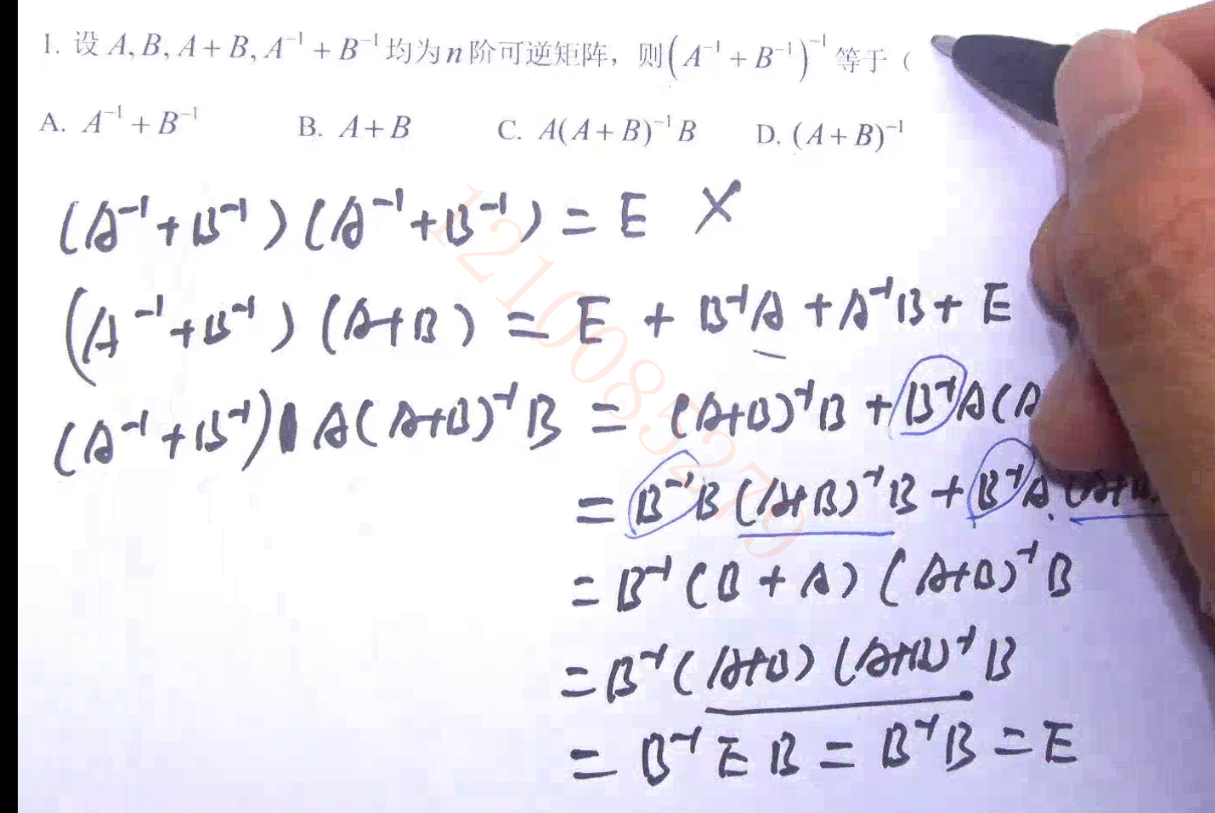 1. 设 A, B, A + B, A⁻¹ + B⁻¹ 均为 n 阶可逆矩阵，则(A⁻¹ + B⁻¹)⁻¹ 等于（
A. A⁻¹ + B⁻¹ B. A + B C. A(A + B)⁻¹ B D. (A + B)⁻¹
(A⁻¹ + B⁻¹)(A⁻¹ + B⁻¹) = E ×
(A⁻¹ + B⁻¹)(A+B) = E + B⁻¹A + A⁻¹B + E
(A⁻¹ + B⁻¹) A(A+B)⁻¹B = (A+B)⁻¹B + B⁻¹A(A
= B⁻¹B(A+B)⁻¹B + B⁻¹A(A+B
= B⁻¹(B + A)(A+B)⁻¹B
= B⁻¹(A+B)(A+B)⁻¹B
= B⁻¹EB = B⁻¹B = E
1210085279